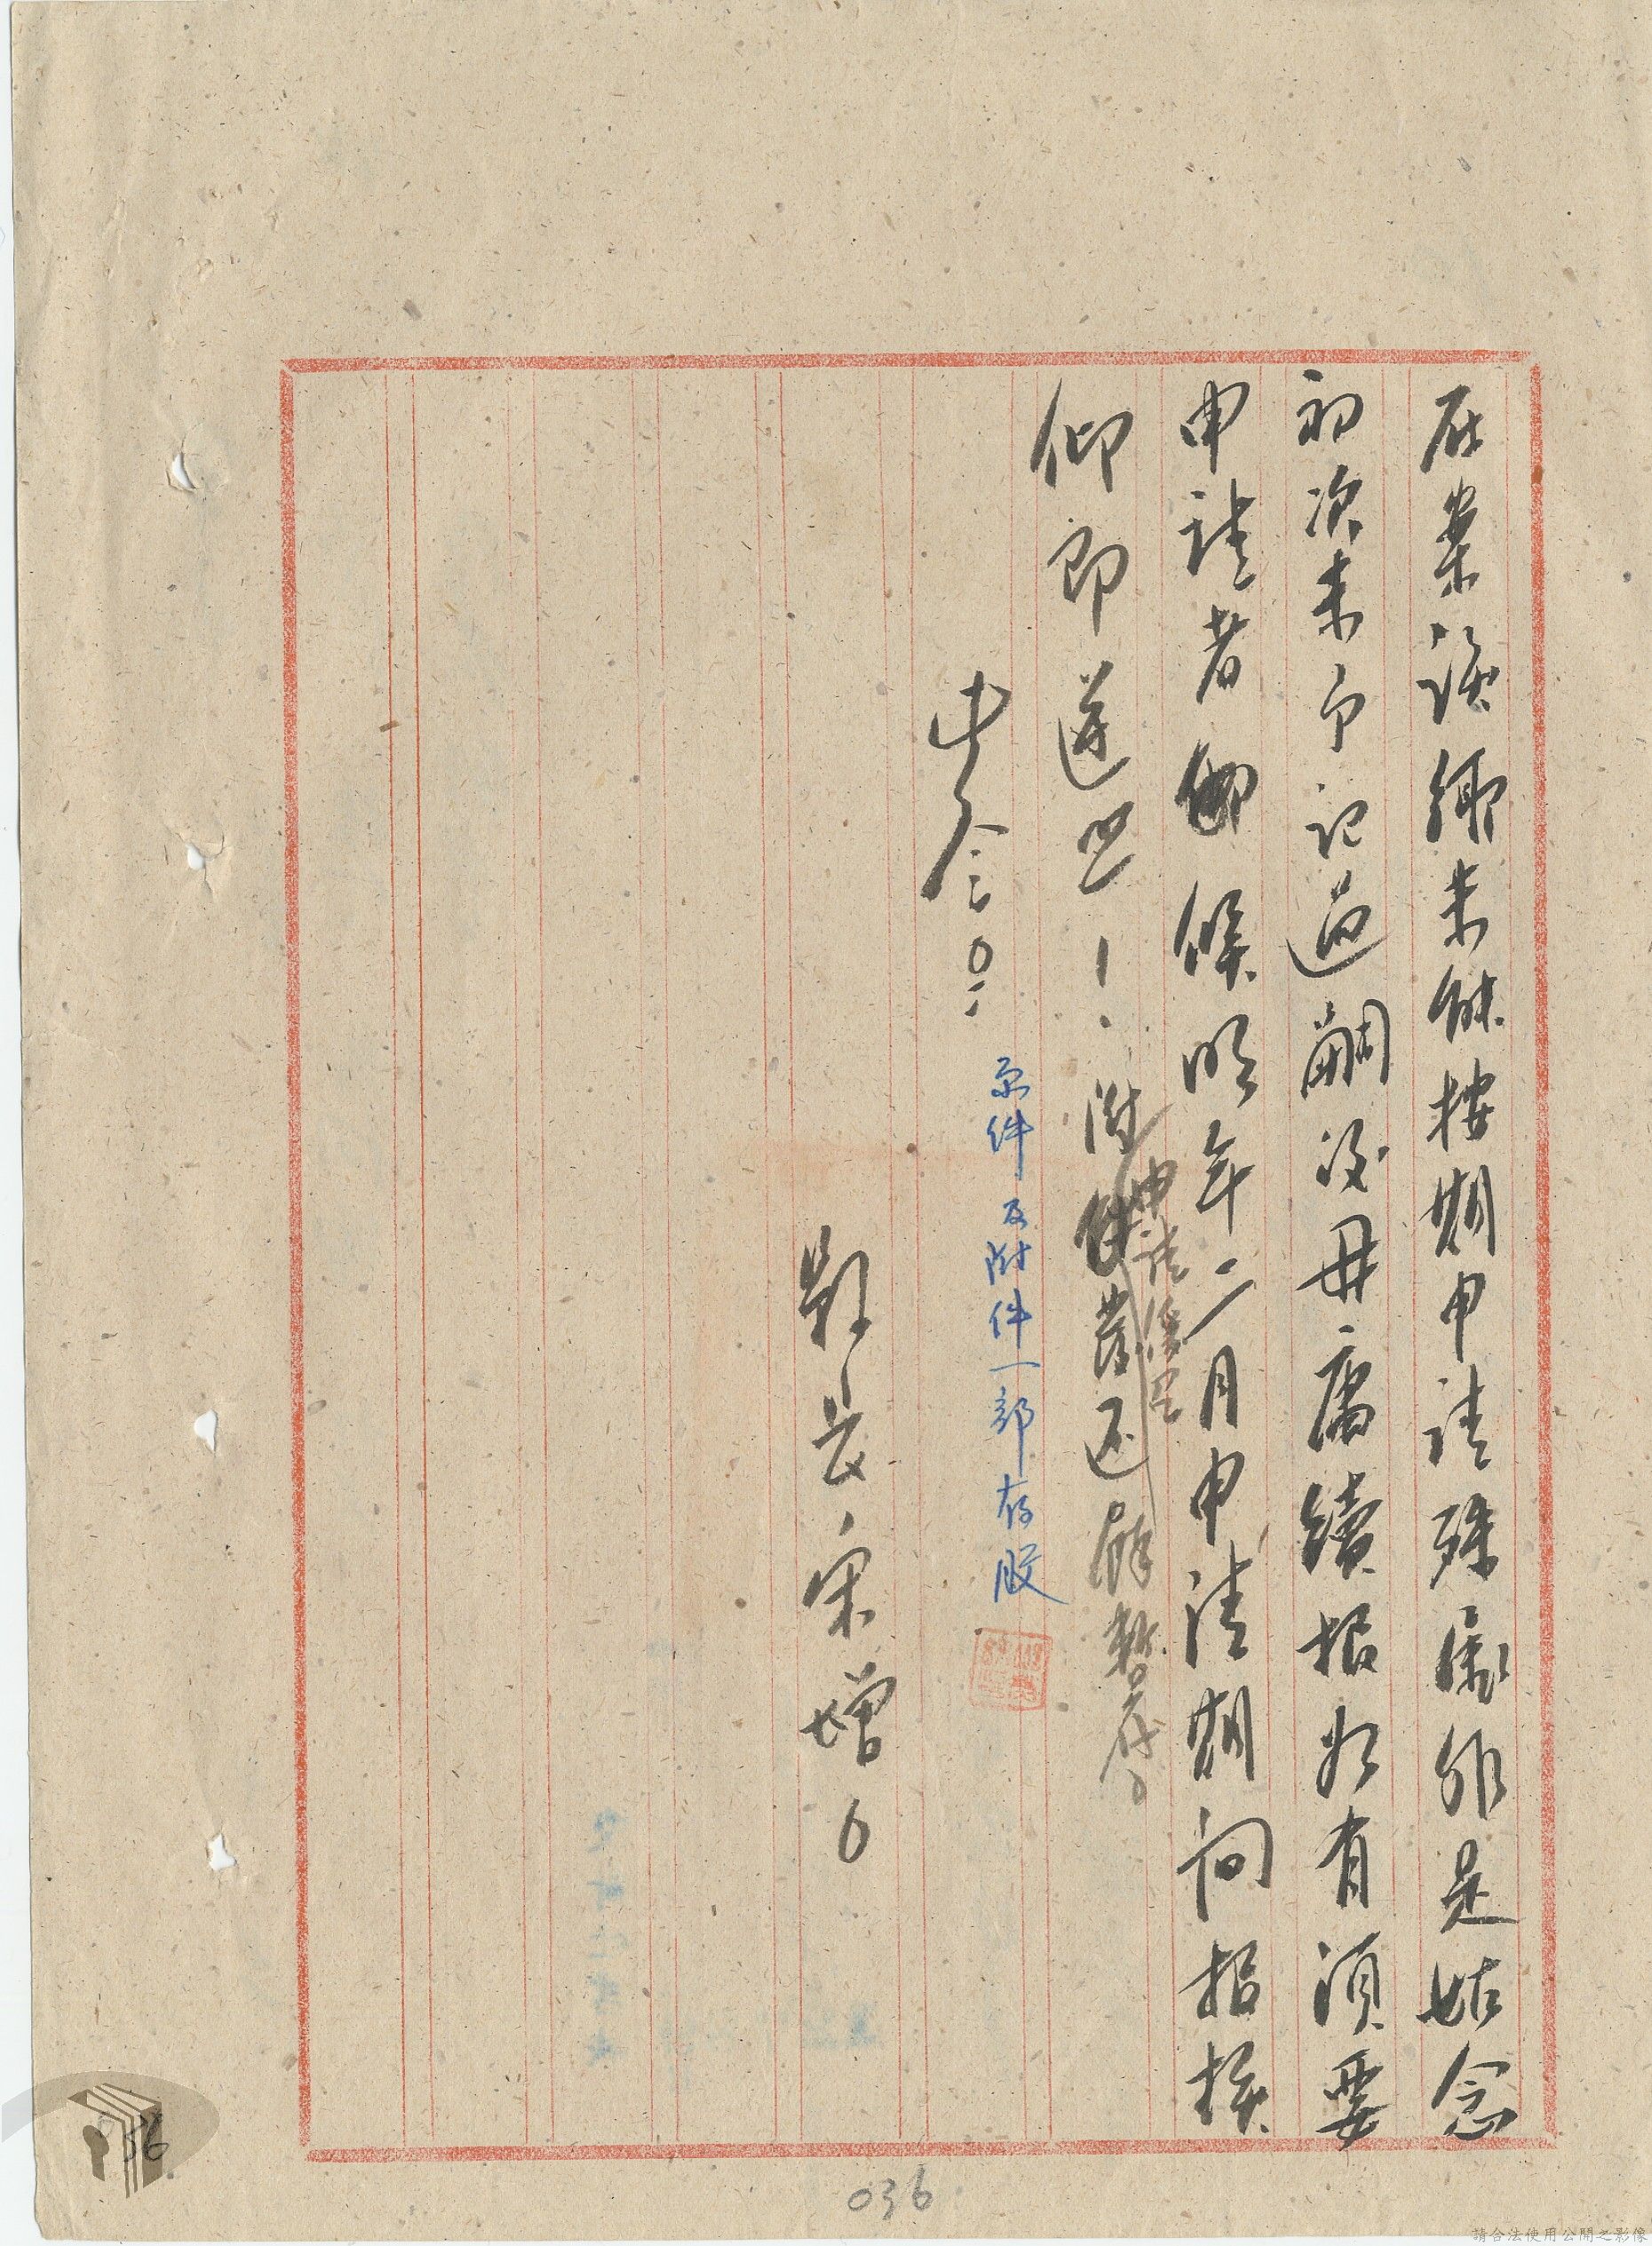 在案該鄉未能按期申請殊屬非是姑念
初次未予記過嗣後毋庸續報如有須要
申請者仰候明年二月申請期間报核
仰即遵照！附件發还餘暫存
申請優良
此令。
原件及附件一部存股
縣長宋增〇
036
036
請合法使用公開之影像